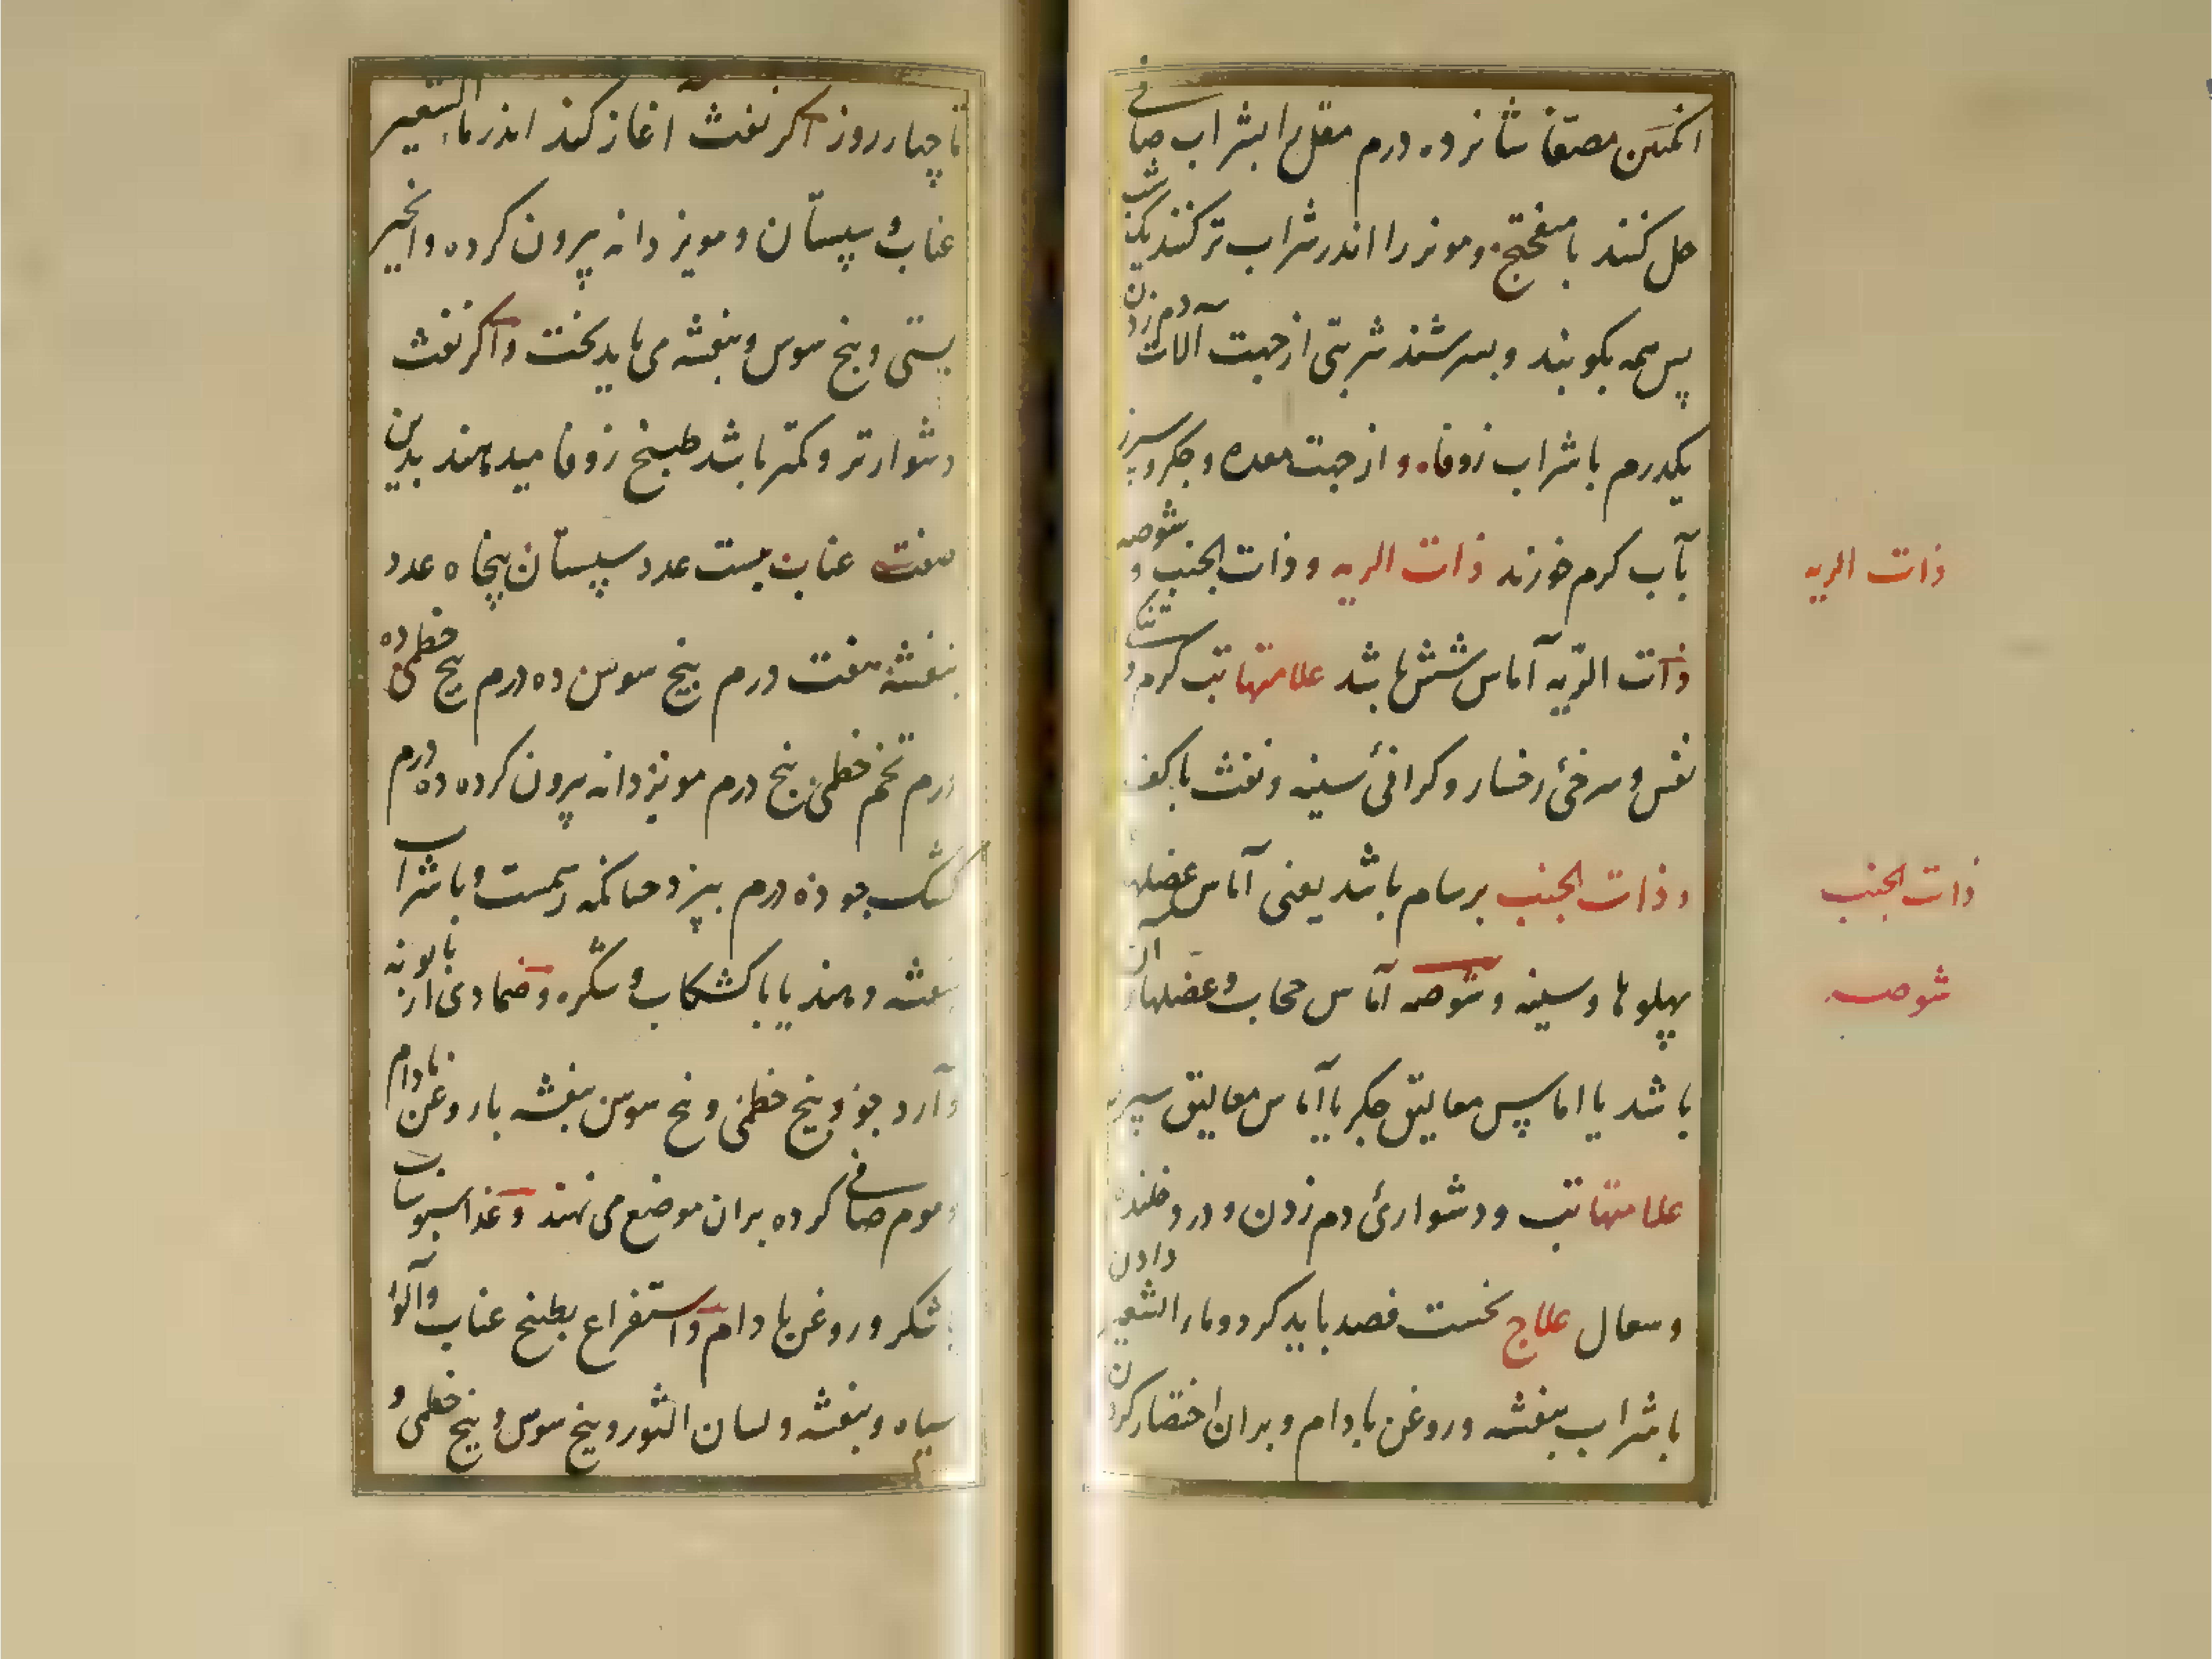 انگبین مصفا شانزده درم مقل را بشراب صافی
حل کنند یا میفختج و مویز را اندر شراب تر کنند یک شب
پس همه بکوبند و بسرشند شربتی از جهت آلات دم زدن
یکدرم با شراب زوفا و از جهت معده و جکر و سپرز
بآب کرم خورند ذات الریه و ذات الجنب و شوصه
ذات الریه آماس شش باشد علامتها تب کرم و تنکی
نفس و سرخی رخسار و کرانی سینه و نفث با کف
و ذات الجنب برسام باشد یعنی آماس عضلهاء
پهلوها و سینه و شوصه آماس حجاب و عضلهاء آن
باشد یا اماس معالیق جکر یا آماس معالیق سپرز
علامتها تب و دشواری دم زدن و درد خلنده
و سعال علاج نخست فصد باید کرد و ماء الشعیر دادن
با شراب بنفشه و روغن بادام و بران اختصار کردن
ذات الریه
ذات الجنب
شوصه
تا چهار روز اکر نفث آغاز کند اندر ماء الشعیر
عناب و سپستان و مویز دانه بیرون کرده و انجیر
بستی و بیخ سوس و بنفشه می باید پخت و اکر نفث
دشوارتر و کمتر باشد طبیخ زوفا میدهند بدین
صفت عناب بیست عدد سپستان پنجاه عدد
بنفشه هفت درم بیخ سوسن ده درم بیخ خطمی ده
درم تخم خطمی پنج درم مویز دانه بیرون کرده ده درم
کشک جو ده درم بپزد چنانکه رسمست و با شراب
بنفشه دهند یا با کشکاب و شکره و ضمادی از بابونه
و آرد جو و بیخ خطمی و بیخ سوسن بنفشه بار وغن بادام
و موم صافی کرده بران موضع می نهند و غذا سبوساب
با شکر و روغن بادام و استفراغ بطبیخ عناب و آلو
سیاه و بنفشه و لسان الثور و بیخ سوس و بیخ خطمی و